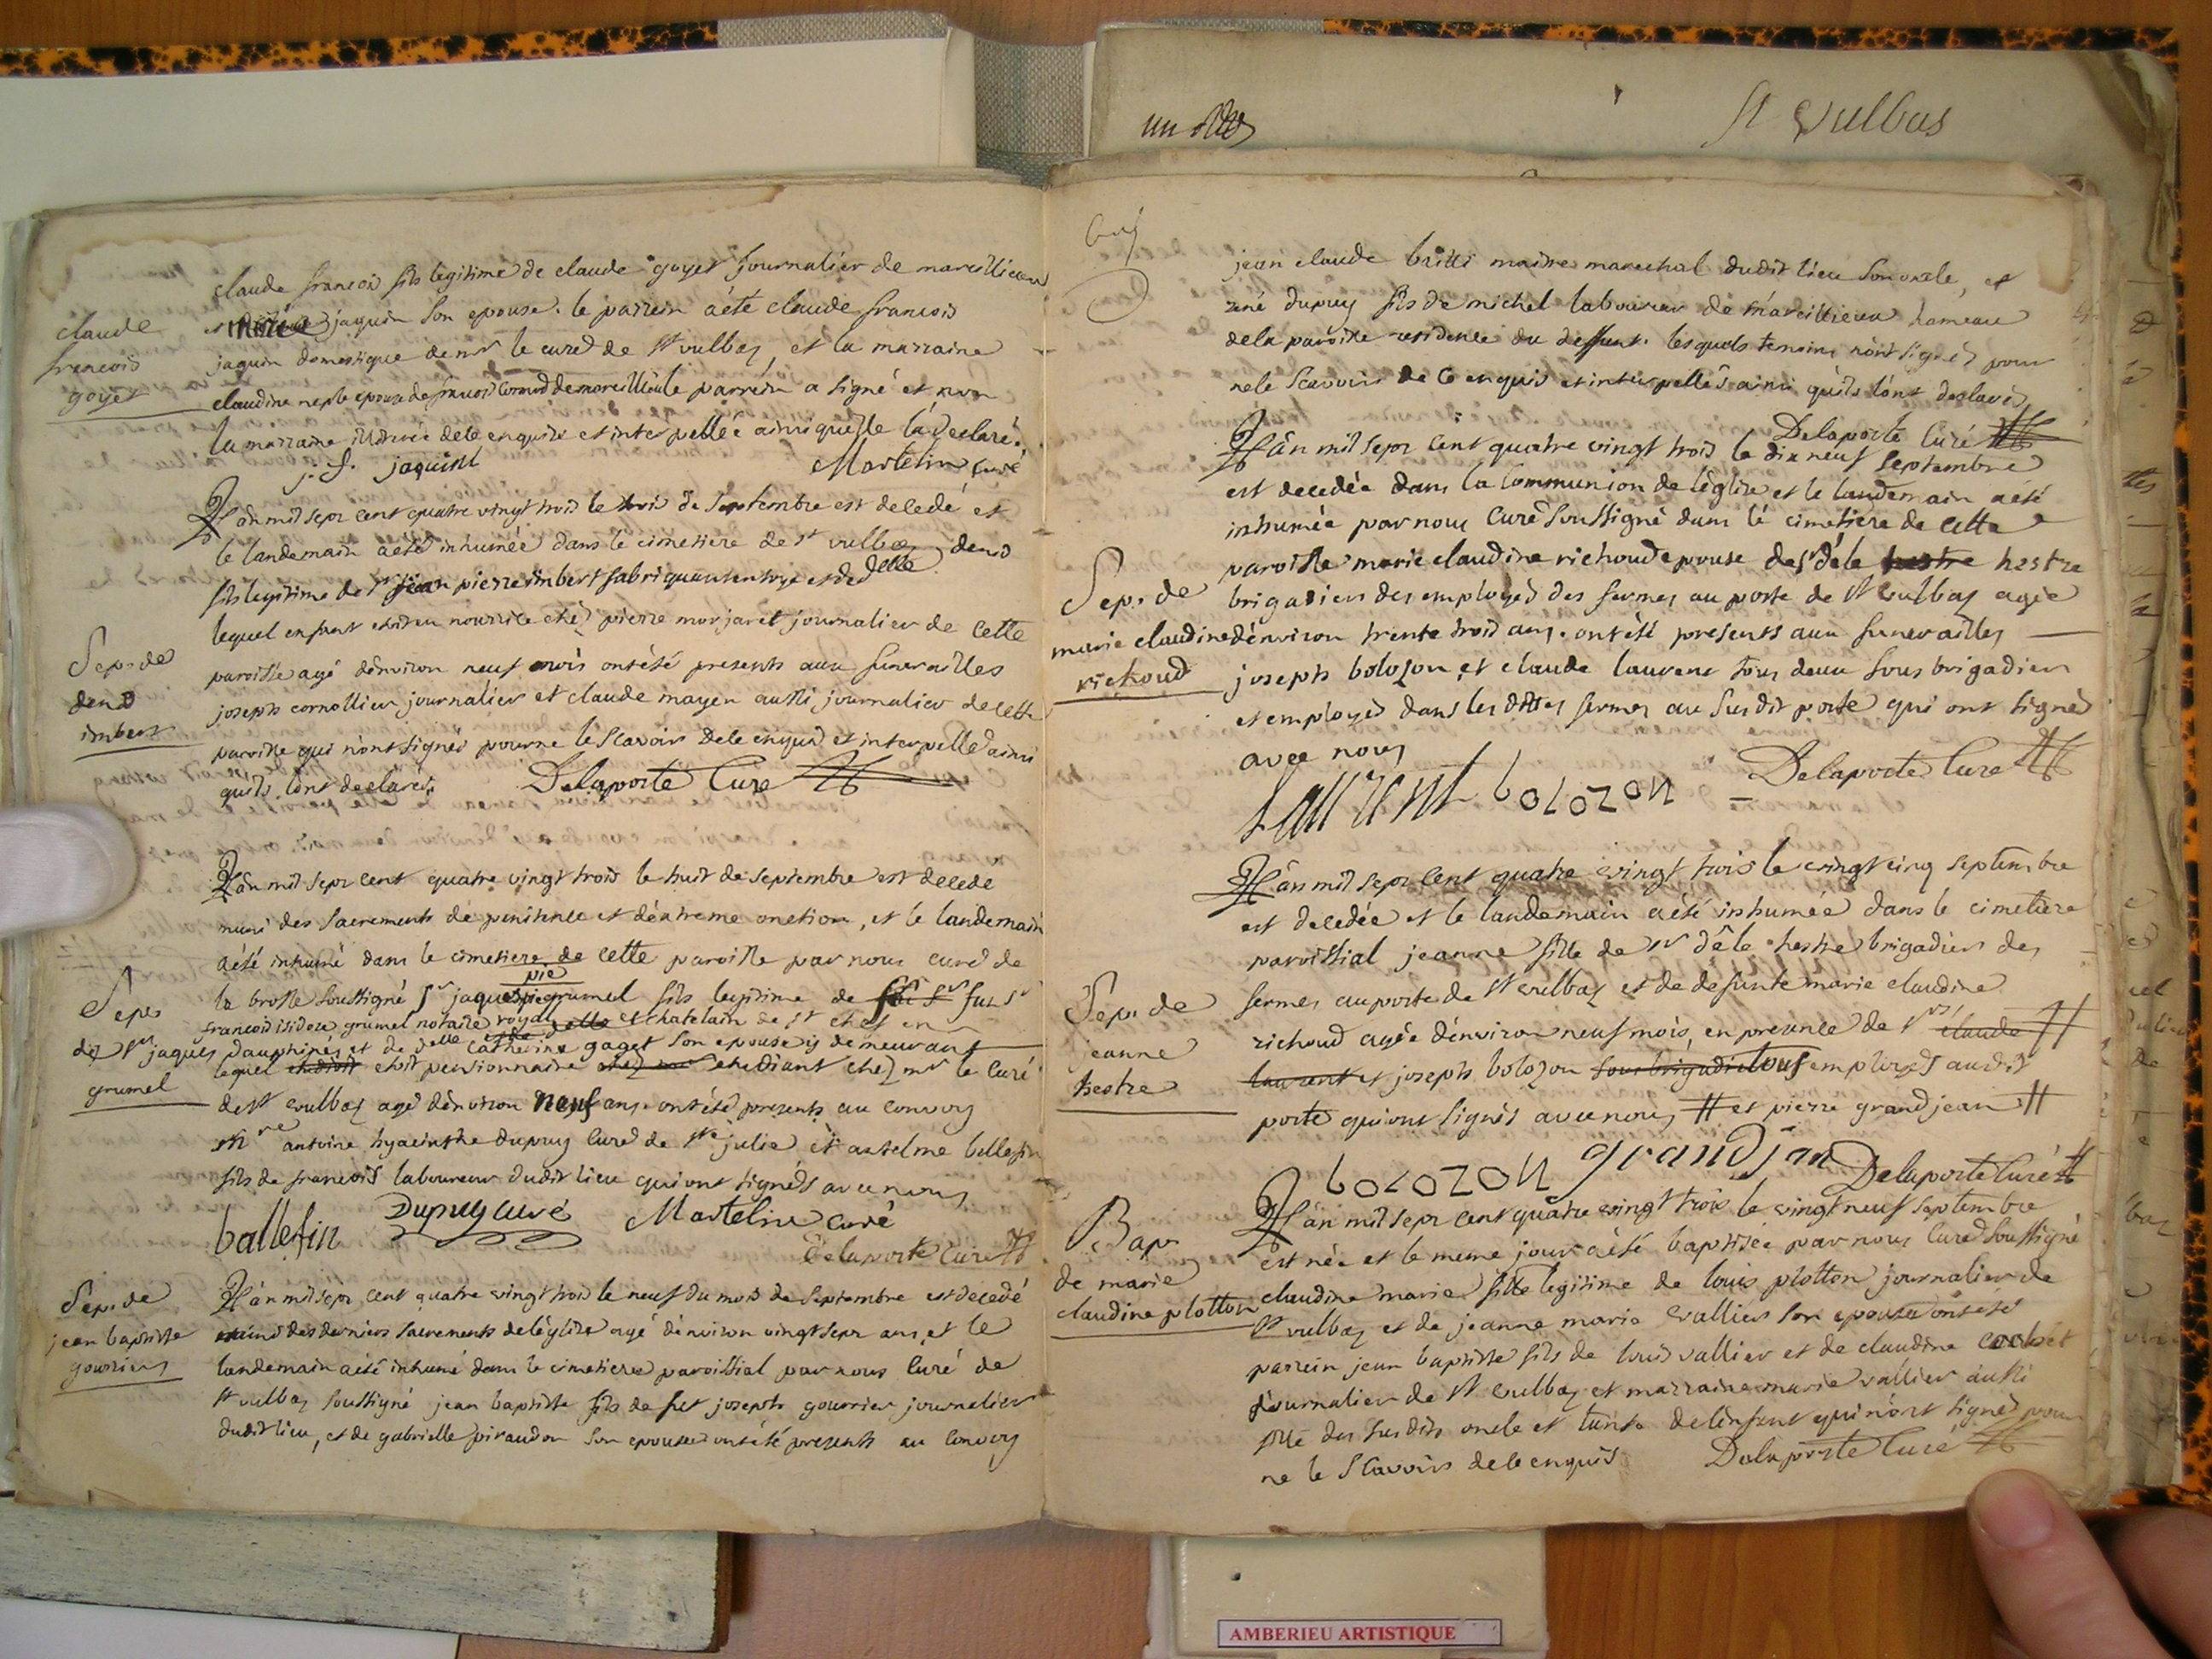 St Vulbas
claude françois fils legitime de claude goyet journalier de marcillieux
et jaquin son epouse. le parrein a été claude françois
jaquin domestique de mr le curé de st vulbas, et la marraine
claudine epouse de françois de marcillieu le parrein a signé et non
la marraine de ce enquise et interpellée ainsi quelle la declaré.
j. f. jaquint Martelin curé
claude
françois
goyet
L'an mil sept cent quatre vingt trois le trois de septembre est decedé et
le landemain a été inhumée dans le cimetiere de st vulbas denis
fils legitime de sr jean pierre imbert fabriquant en soye et de delle
lequel enfant etoit en nourrice chez pierre morjaret journalier de cette
paroisse agé d'environ neuf mois ont été presents aux funerailles
joseph cornollier journalier et claude mayen aussi journalier de cette
paroisse qui n'ont signés pour ne le scavoir de ce enquis et interpellé ainsi
quils l'ont declarés. Delaporte Curé
Sep. de
denis
imbert
L'an mil sept cent quatre vingt trois le huit de septembre est decede
muni des sacrements de penitence et d'extreme onction, et le landemain
a été inhumé dans le cimetiere de cette paroisse par nous curé de
pie
la brosse soussigné sr jaques grumel fils legitime de feu sr
francois isidore grumel notaire royal et chatelain de st chef en
dauphiné et de delle catherine gaget son epouse y demeurant
lequel etoit pensionnaire etudiant chez mr le curé
de st vulbas agé d'environ neuf ans. ont été presents au convoy
mre antoine hyacinthe dupuy curé de ste julie et antelme ballefin
fils de francois laboureur dudit lieu qui ont signéds avec nous
ballefin Dupuy curé Martelin curé
Delaporte curé
Sep.
de sr jaques
grumel
L'an mil sept cent quatre vingt trois le neuf du mois de septembre est decedé
muni des derniers sacrements de l'église agé d'environ vingt sept ans, et le
landemain a été inhumé dans le cimetiere paroissial par nous curé de
st vulbas soussigné jean baptiste fils de feu joseph gourrier journalier
dudit lieu, et de gabrielle piraudon son epouse ont été presents au convoy
Sep. de
jean baptiste
gourrier
jean claude maitre marechal dudit lieu son oncle, et
rené dupuy fils de michel laboureur de marcillieux hameau
de la paroisse residence du deffunt. lesquels temoins n'ont signés pour
ne le scavoir de ce enquis et interpellés ainsi qu'ils l'ont declarés
Delaporte Curé
L'an mil sept cent quatre vingt trois le dix neuf septembre
est decedée dans la communion de l'église et le landemain a été
inhumée par nous curé soussigné dans le cimetiere de cette
paroisse marie claudine richoud epouse de sr dele hestre
brigadier des employés des fermes au poste de st vulbas agée
d'environ trente trois ans. ont été presents aux funerailles
joseph bolozon et claude laurent tous deux sous brigadier
et employés dans les dittes fermes au susdit poste qui ont signés
avec nous
Laurent bolozon Delaporte Curé
Sep. de
marie claudine
richoud
L'an mil sept cent quatre vingt trois le vingt cinq septembre
est decedée et le landemain a été inhumée dans le cimetiere
paroissial jeanne fille de sr dele hestre brigadier des
fermes au poste de st vulbas et de defunte marie claudine
richoud agée d'environ neuf mois, en presence de srs claude
laurent et joseph bolozon sous brigadi tous employés audit
poste qui ont signés avec nous # et pierre grandjean #
bolozon grandjan Delaporte Curé
Sep. de
jeanne
hestre
L'an mil sept cent quatre vingt trois le vingt neuf septembre
est née et le meme jour a été baptisée par nous curé soussigné
claudine marie fille legitime de louis plotton journalier de
st vulbas et de jeanne marie vallier son epouse ont été
parrein jean baptiste fils de louis vallier et de claudine
journalier de st vulbas et marraine marie vallier aussi
fille des susdits oncle et tante de l'enfant qui n'ont signés pour
ne le scavoir de ce enquis Delaporte Curé
Bap.
de marie
claudine plotton
AMBERIEU ARTISTIQUE